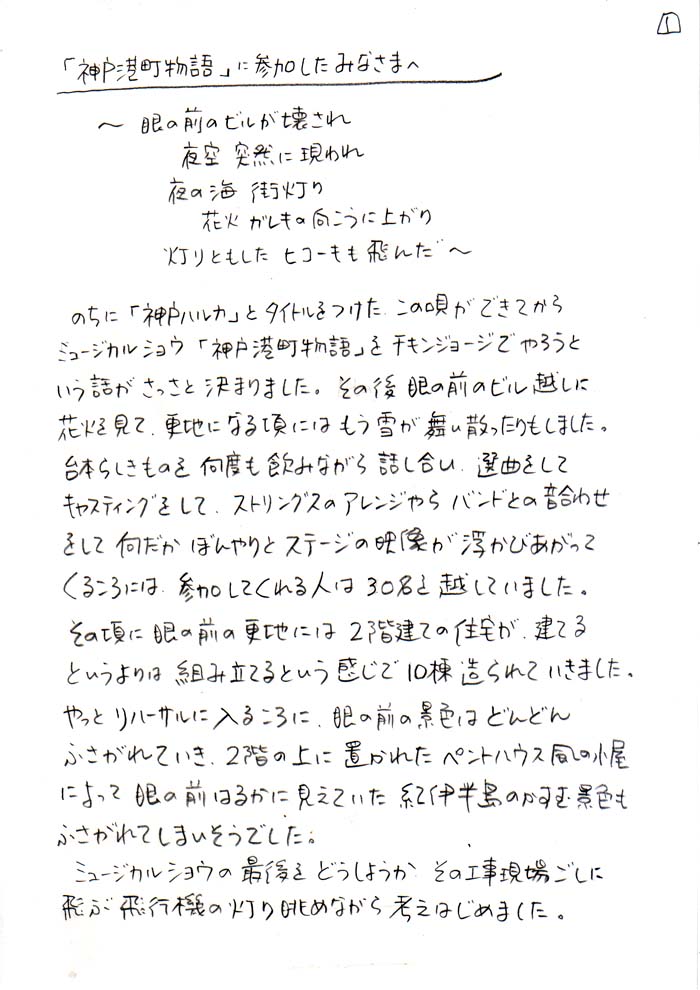 1
「神戸港町物語」に参加したみなさまへ
〜 眼の前のビルが壊され
夜空 突然に現われ
夜の海 街灯り
花火 ガレキの向こうに上がり
灯りともした ヒコーキも飛んだ 〜
のちに「神戸ハルカ」とタイトルをつけた、この唄ができてから
ミュージカルショウ「神戸港町物語」をチキンジョージでやろうと
いう話がさっさと決まりました。その後 眼の前のビル越しに
花火を見て、更地になる頃にはもう雪が舞い散ったりもしました。
台本らしきものを何度も飲みながら話し合い、選曲をして
キャスティングをして、ストリングスのアレンジやら バンドとの音合わせ
をして何だか ぼんやりとステージの映像が浮かびあがって
くるころには、参加してくれる人は30名を越していました。
その頃に眼の前の更地には2階建ての住宅が、建てる
というよりは組み立てるという感じで10棟造られていきました。
やっとリハーサルに入るころに、眼の前の景色はどんどん
ふさがれていき、2階の上に置かれたペントハウス風の小屋
によって眼の前はるかに見えていた紀伊半島のかすむ景色も
ふさがれてしまいそうでした。
ミュージカルショウの最後をどうしようか その工事現場ごしに
飛ぶ飛行機の灯り眺めながら考えはじめました。